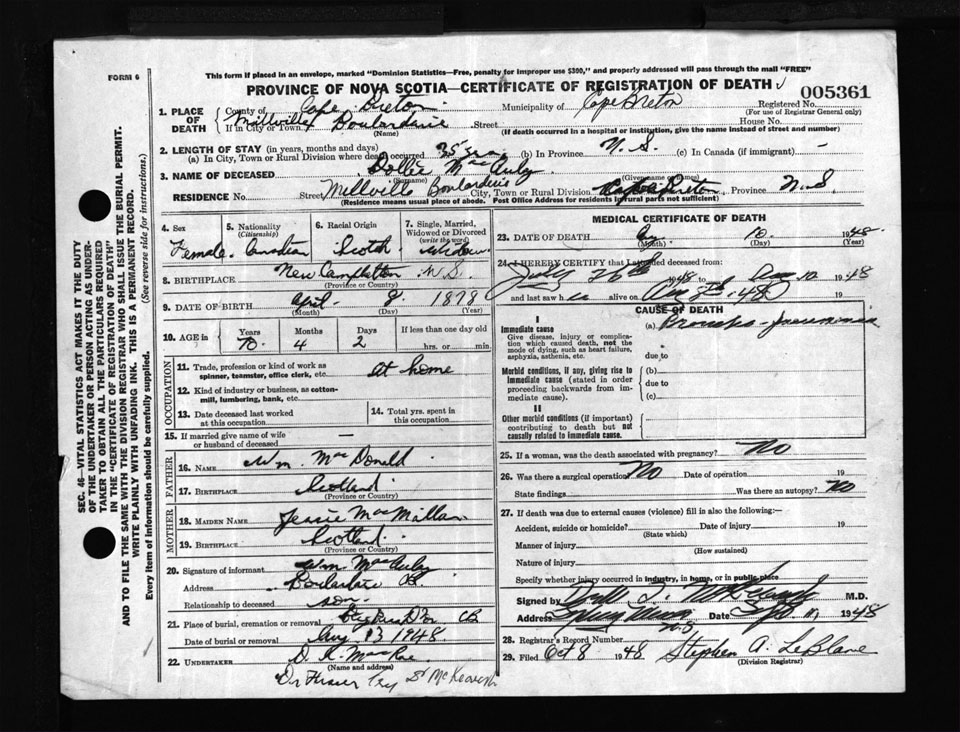 FORM 6
This form if placed in an envelope, marked "Dominion Statistics—Free, penalty for improper use $300," and properly addressed will pass through the mail "FREE"
PROVINCE OF NOVA SCOTIA—CERTIFICATE OF REGISTRATION OF DEATH
005361
1. PLACE OF DEATH County of Cape Breton Municipality of Cape Breton Registered No.
(For use of Registrar General only)
In City or Town Millville Boularderie Street House No.
(Name) (If death occurred in a hospital or institution, give the name instead of street and number)
2. LENGTH OF STAY (in years, months and days)
(a) In City, Town or Rural Division where death occurred 35 yrs (b) In Province N. S. (c) In Canada (if immigrant) -
3. NAME OF DECEASED Dollie MacAuley
(Surname) (Given name or names)
RESIDENCE No. Street Millville Boularderie City, Town or Rural Division Cape Breton Province N.S.
(Residence means usual place of abode. Post Office Address for residents in rural parts not sufficient)
SEC. 46—VITAL STATISTICS ACT MAKES IT THE DUTY
OF THE UNDERTAKER OR PERSON ACTING AS UNDER-
TAKER TO OBTAIN ALL THE PARTICULARS REQUIRED
IN THE "CERTIFICATE OF REGISTRATION OF DEATH"
AND TO FILE THE SAME WITH THE DIVISION REGISTRAR WHO SHALL ISSUE THE BURIAL PERMIT.
WRITE PLAINLY WITH UNFADING INK. THIS IS A PERMANENT RECORD.
Every item of information should be carefully supplied. (See reverse side for instructions.)
4. Sex 5. Nationality (Citizenship) 6. Racial Origin 7. Single, Married, Widowed or Divorced (write the word)
Female. Canadian Scotch Widow
8. BIRTHPLACE New Campbellton N.S.
(Province or Country)
9. DATE OF BIRTH April 8 1878
(Month) (Day) (Year)
10. AGE in Years Months Days If less than one day old
70 4 2 hrs. or min.
OCCUPATION
11. Trade, profession or kind of work as spinner, teamster, office clerk, etc. At home
12. Kind of industry or business, as cotton-mill, lumbering, bank, etc.
13. Date deceased last worked at this occupation
14. Total yrs. spent in this occupation
15. If married give name of wife or husband of deceased —
FATHER
16. NAME Wm. MacDonald
17. BIRTHPLACE Scotland
(Province or Country)
MOTHER
18. MAIDEN NAME Jessie MacMillan
19. BIRTHPLACE Scotland
(Province or Country)
20. Signature of informant Wm. MacAuley
Address Boularderie CB
Relationship to deceased son
21. Place of burial, cremation or removal CB
Date of burial or removal Aug 13 1948
22. UNDERTAKER D. R. MacRae
(Name and address)
MEDICAL CERTIFICATE OF DEATH
23. DATE OF DEATH Aug 10 1948
(Month) (Day) (Year)
24. I HEREBY CERTIFY that I attended deceased from:
July 26th 1948 to Aug 10 1948
and last saw h alive on Aug 48 19
CAUSE OF DEATH
I
Immediate cause (a) Broncho-pneumonia
Give disease, injury or complica-
tion which caused death, not the
mode of dying, such as heart failure,
asphyxia, asthenia, etc. due to
Morbid conditions, if any, giving rise to (b)
immediate cause (stated in order due to
proceeding backwards from im-
mediate cause). (c)
II
Other morbid conditions (if important)
contributing to death but not
causally related to immediate cause.
25. If a woman, was the death associated with pregnancy? No
26. Was there a surgical operation No Date of operation 19
State findings Was there an autopsy? No
27. If death was due to external causes (violence) fill in also the following:—
Accident, suicide or homicide? Date of injury 19
(State which)
Manner of injury
(How sustained)
Nature of injury
Specify whether injury occurred in industry, in home, or in public place
Signed by M.D.
Address Date Sept. 11, 1948
28. Registrar's Record Number
29. Filed Oct 8 1948 Stephen A. LeBlanc
(Division Registrar)
Dr Fraser